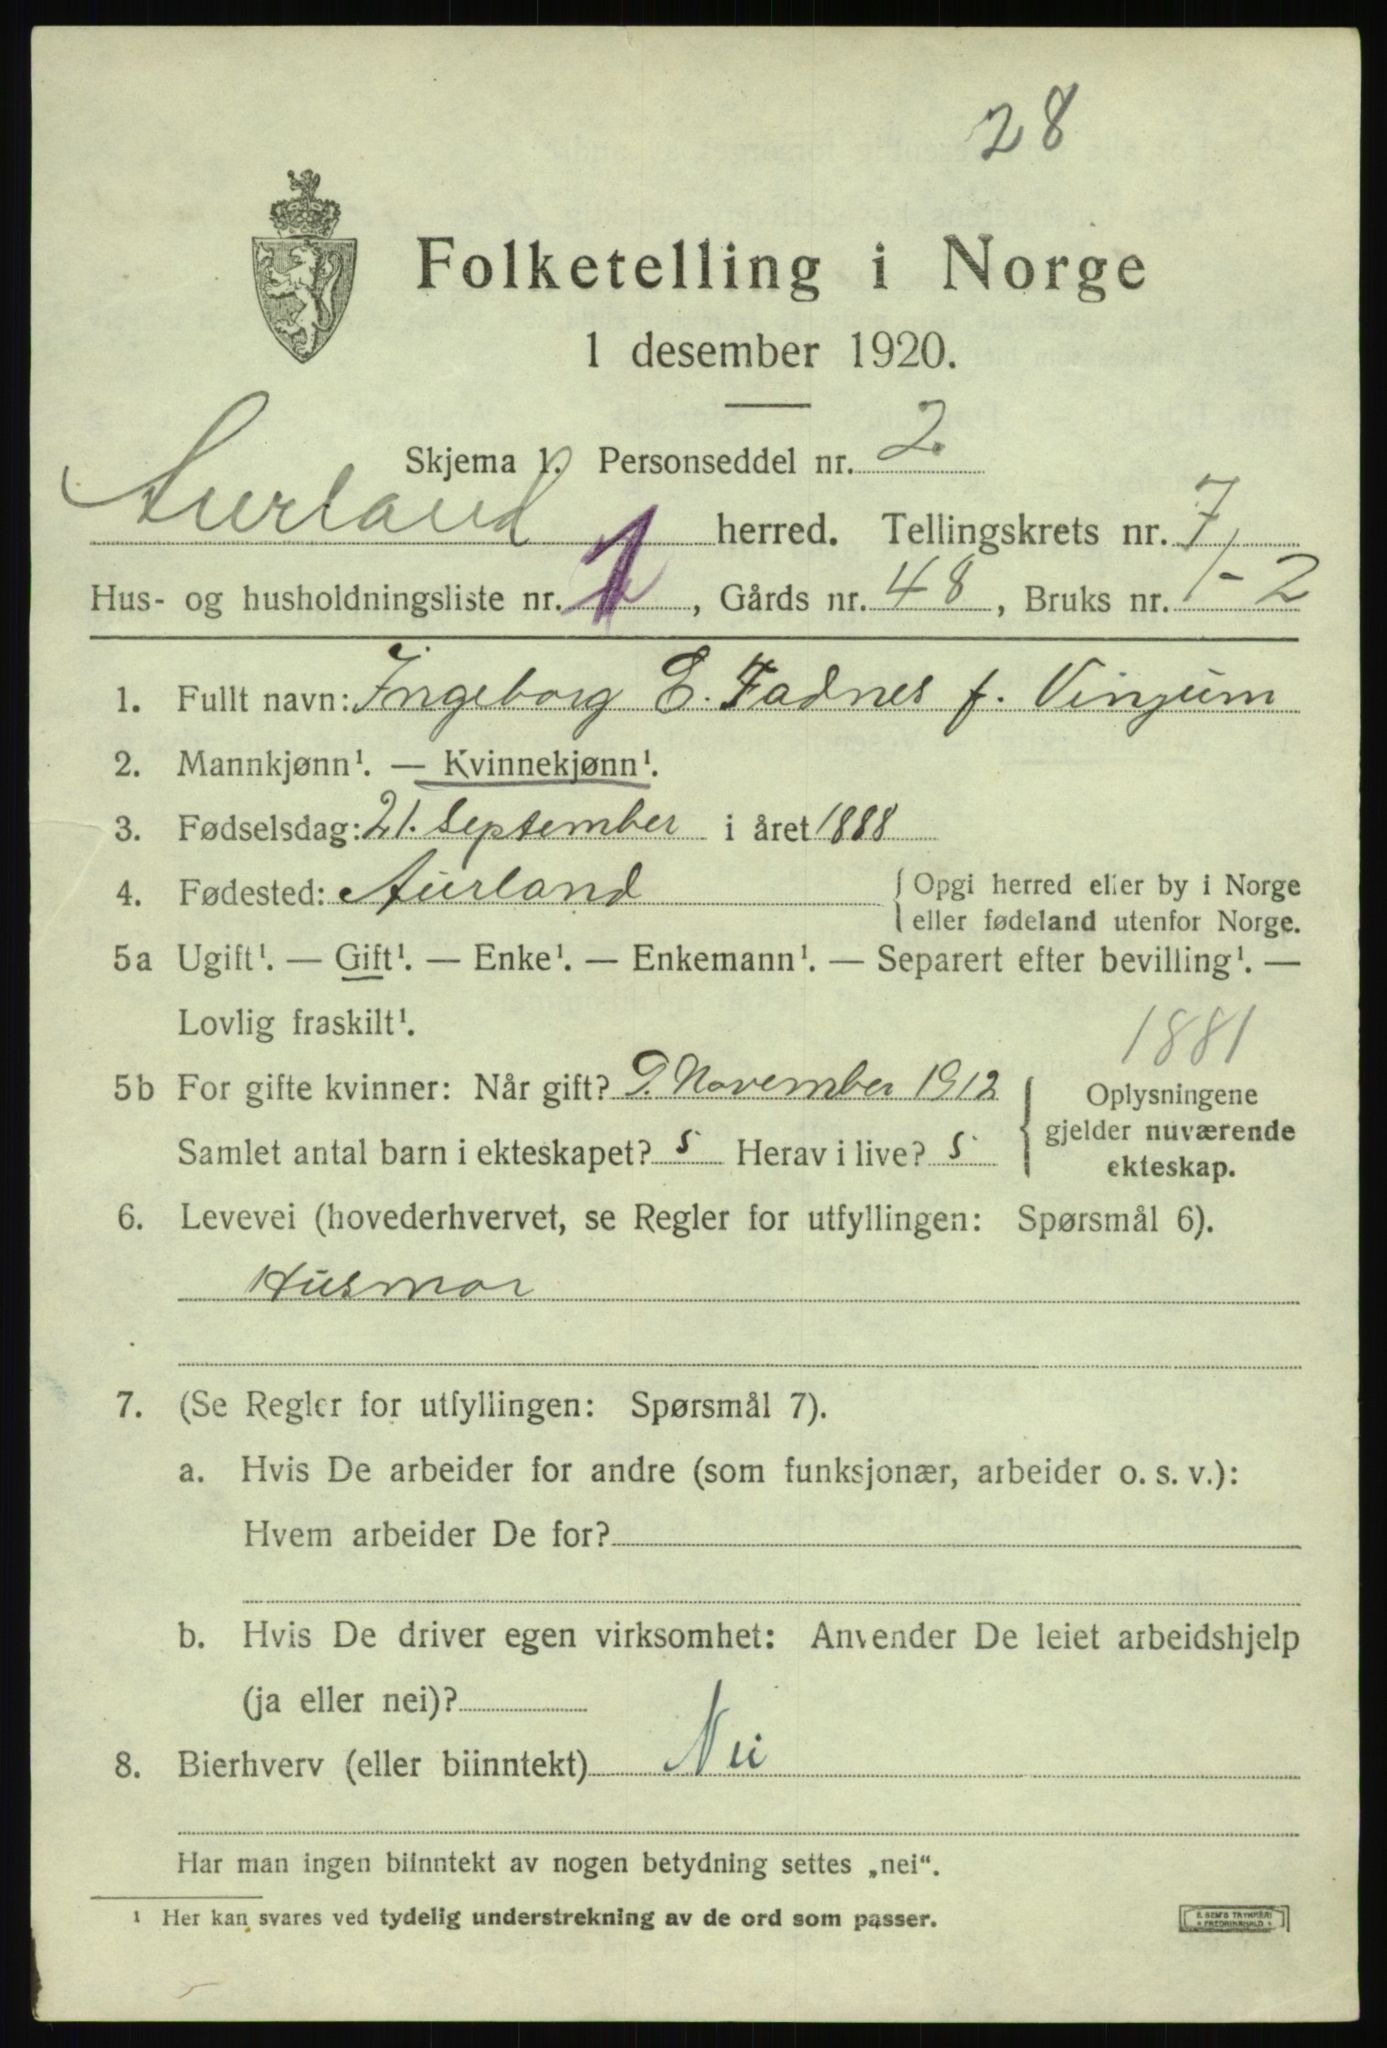 28
Folketelling i Norge
1 desember 1920.
Skjema 1. Personseddel nr. 2
Aurland herred. Tellingskrets nr. 7
Hus- og husholdningsliste nr. 1, Gårds nr. 48, Bruks nr. 1-2
1. Fullt navn: Ingeborg E. Fadnes f. Vinjum
2. Mannkjønn¹. — Kvinnekjønn¹.
3. Fødselsdag: 21. september i året 1888
4. Fødested: Aurland { Opgi herred eller by i Norge
eller fødeland utenfor Norge.
5a Ugift¹. — Gift¹. — Enke¹. — Enkemann¹. — Separert efter bevilling¹. —
Lovlig fraskilt¹.
1881
5b For gifte kvinner: Når gift? 9. November 1912
Samlet antal barn i ekteskapet? 5 Herav i live? 5
{ Oplysningene
gjelder nuværende
ekteskap.
6. Levevei (hovederhvervet, se Regler for utfyllingen: Spørsmål 6).
Husmor
7. (Se Regler for utfyllingen: Spørsmål 7).
a. Hvis De arbeider for andre (som funksjonær, arbeider o. s. v.):
Hvem arbeider De for?
b. Hvis De driver egen virksomhet: Anvender De leiet arbeidshjelp
(ja eller nei)?
8. Bierhverv (eller biinntekt) Nei
Har man ingen biinntekt av nogen betydning settes „nei“.
¹ Her kan svares ved tydelig understrekning av de ord som passer.
E. SEM'S TRYKKERI
FREDRIKSHALD